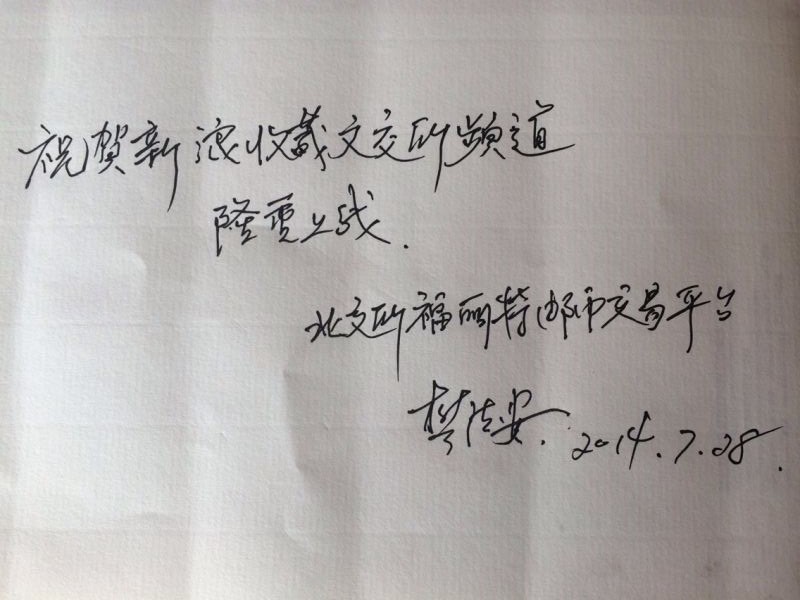 祝贺新浪收藏文交所频道
隆重上线.
北交所福丽特邮币交易平台
2014.7.28.